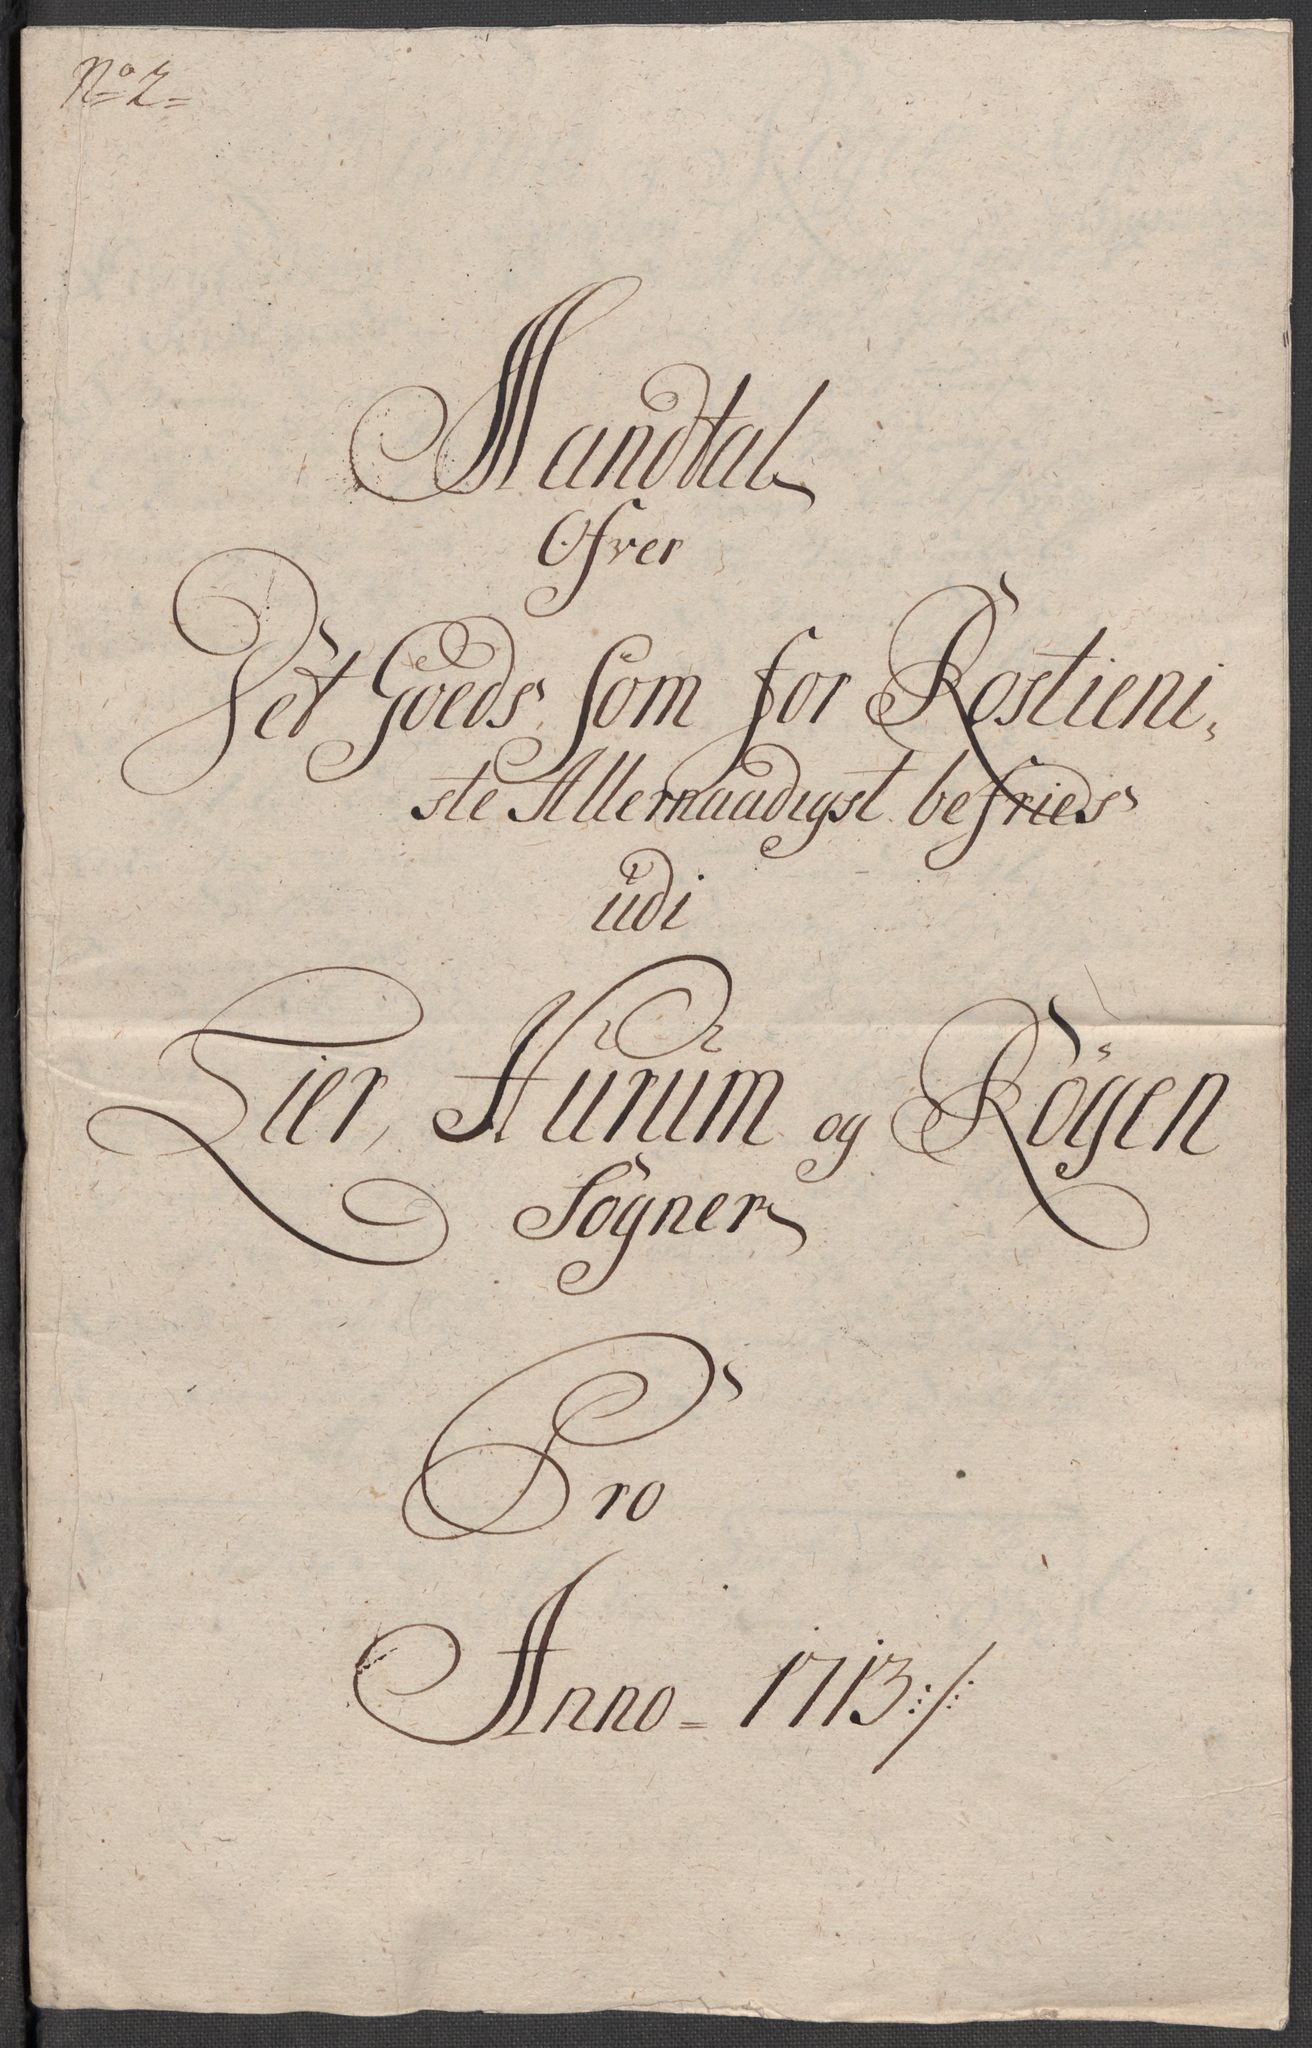 No 2
Mandtal
Ofver
Det Goeds som for Rostieni,
ste Allernaadigst befries
udi
Lier, Hurum og Röÿen
Sogner
Pro
Anno = 1713:/: